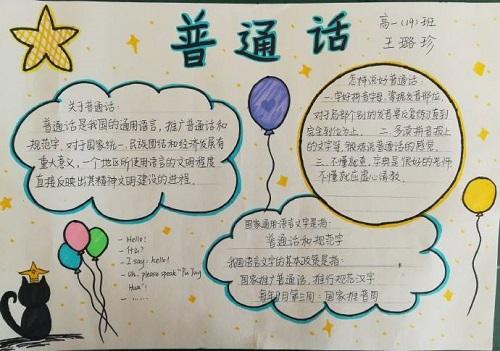 普通话
高一(19)班
王璐珍
关于普通话:
普通话是我国的通用语言,推广普通话和
规范字,对于国家统一、民族团结和经济发展有
重大意义,一个地区所使用语言的文明程度
直接反映出其精神文明建设的进程。
怎样说好普通话:
一.学好拼音字母,掌握发音部位,
对局部个别的发音要反复练习直到
完全到位为止. 二.多读拼音报上
的文字等,锻炼说普通话的感觉。
三.不懂就查,字典是很好的老师
不懂就应虚心请教。
- Hello!
- 什么?
- I say: hello!
- Uh, please speak "Pu Tong
Hua"!
- ……
国家通用语言文字是指:
普通话和规范字
我国语言文字的基本政策是指:
国家推广普通话,推行规范汉字
每年9月第三周:国家推普周